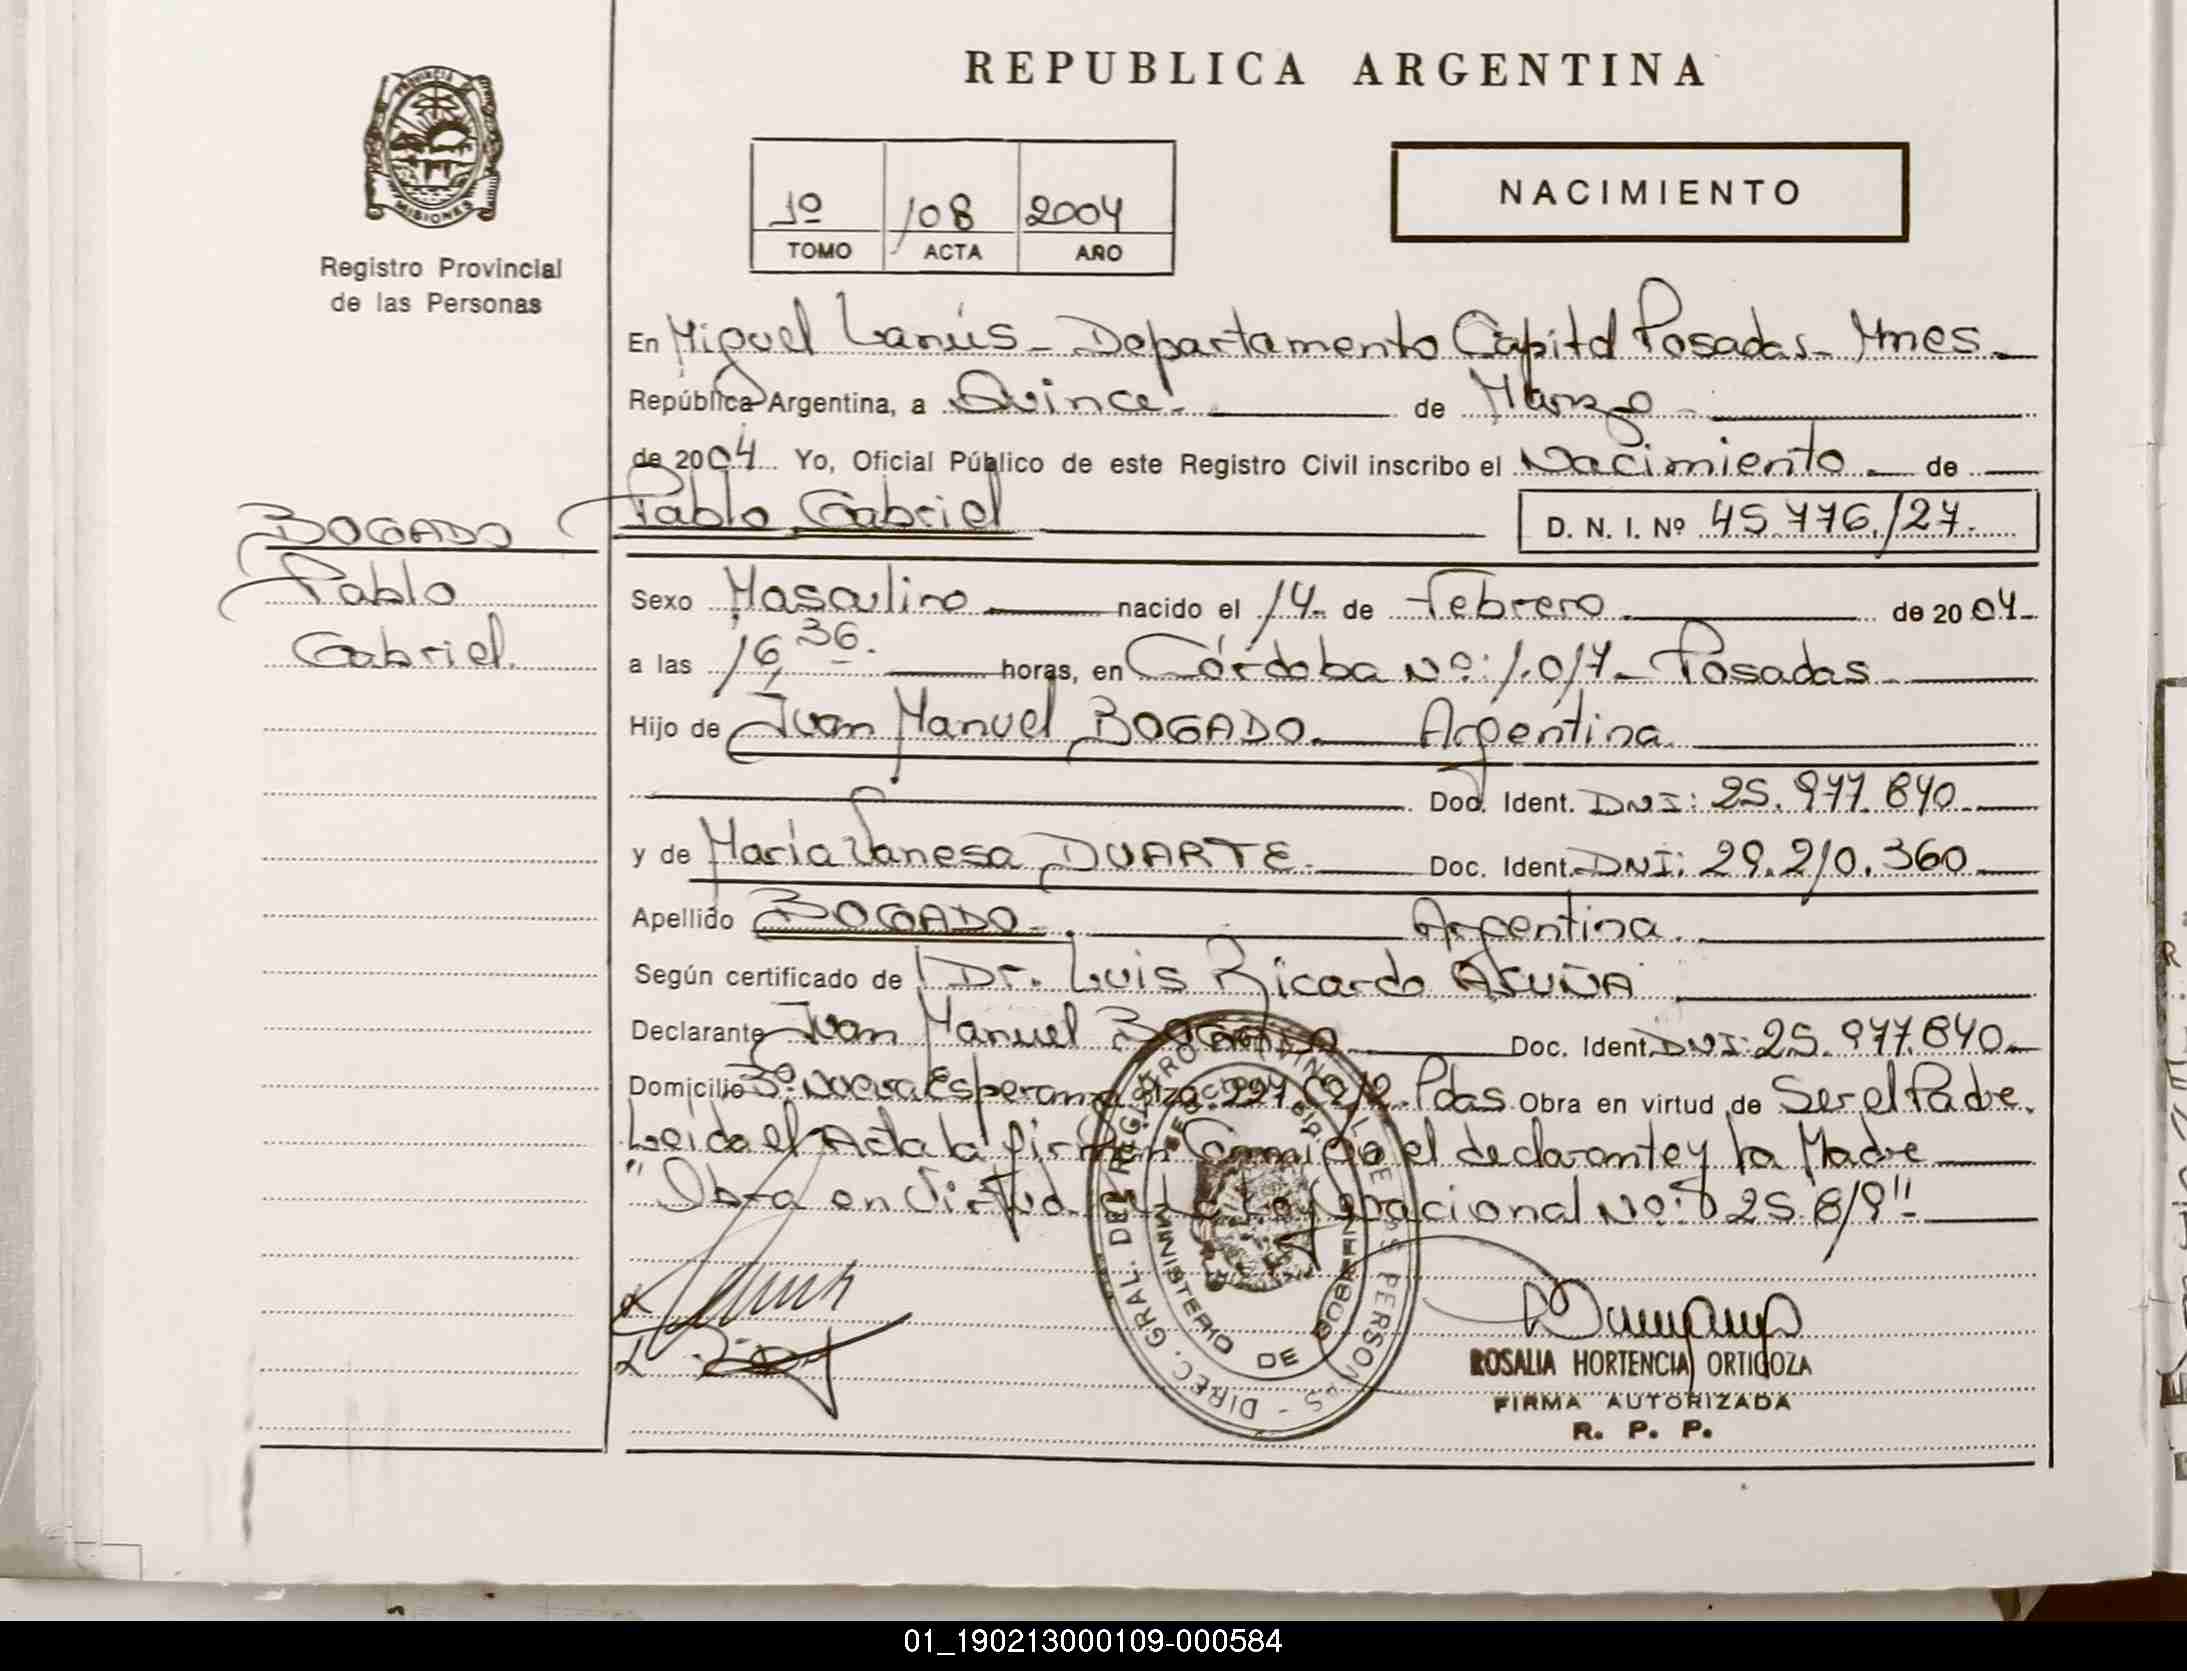 REPUBLICA ARGENTINA
PROVINCIA
MISIONES
Registro Provincial
de las Personas
1º 108 2004
TOMO ACTA AÑO
NACIMIENTO
En Miguel Lanús - Departamento Capital Posadas - Mnes.
República Argentina, a Quince. de Marzo
de 2004 Yo, Oficial Público de este Registro Civil inscribo el Nacimiento de
BOGADO Pablo Gabriel D. N. I. Nº 45.776.127.
Pablo
Gabriel.
Sexo Masculino nacido el 14 de Febrero de 2004
a las 16,36. horas, en Córdoba Nº: 1.017 - Posadas
Hijo de Juan Manuel BOGADO. Argentina
Doc. Ident. DNI: 25.977.840
y de María Vanesa DUARTE. Doc. Ident. DNI: 29.210.360
Apellido BOGADO. Argentina.
Según certificado de Dr. Luis Ricardo ACUÑA
Declarante Juan Manuel BOGADO Doc. Ident. DNI: 25.977.840
Domicilio Bº Nueva Esperanza Mza. 227 C 212. Pdas. Obra en virtud de Ser el Padre.
Leida el Acta la firman Conmigo el declarante y la Madre
"Obra en Virtud de la Ley Nacional Nº: 25.819"
DIREC. GRAL. DEL REGISTRO PROVINCIAL DE LAS PERSONAS
MINISTERIO DE GOBIERNO
ROSALIA HORTENCIA ORTIGOZA
FIRMA AUTORIZADA
R. P. P.
01_190213000109-000584